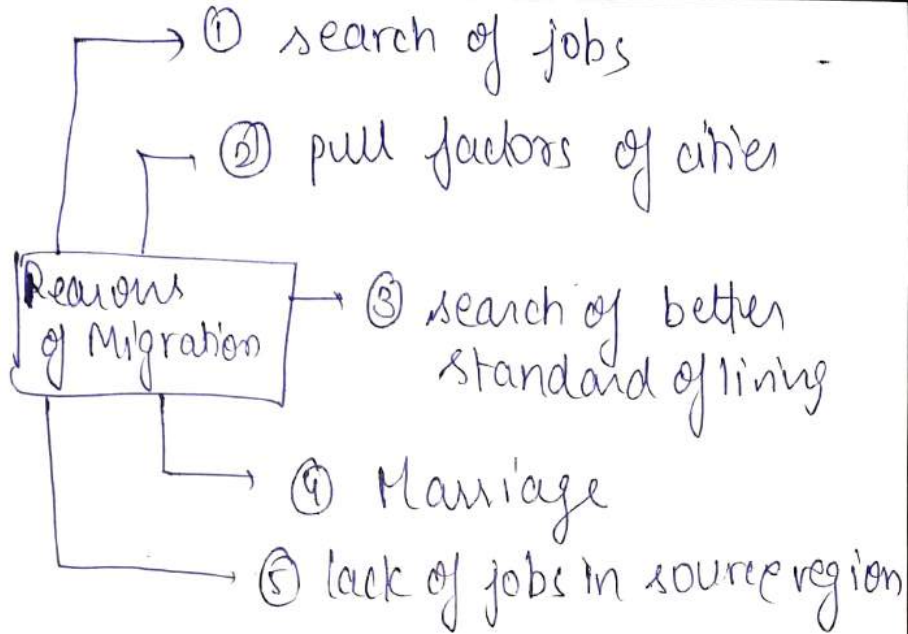 ① search of jobs
② pull factors of cities
Reasons
of Migration
③ search of better
standard of living
④ Marriage
⑤ lack of jobs in source region